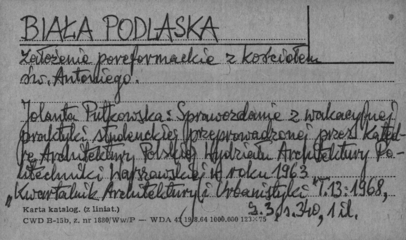 BIAŁA PODLASKA
Założenie poreformackie z kościołem
św. Antoniego.
Jolanta Putkowska: Sprawozdanie z wakacyjnej
praktyki studenckiej przeprowadzonej przez kated-
rę Architektury Polskiej Wydziału Architektury Po-
litechniki Warszawskiej w roku 1963
"Kwartalnik Architektury i Urbanistyki" T.13: 1968,
z. 3, s. 340, 1 il.
Karta katalog. (z liniat.)
CWD B-15b, z. nr 1880/Ww/P — WDA